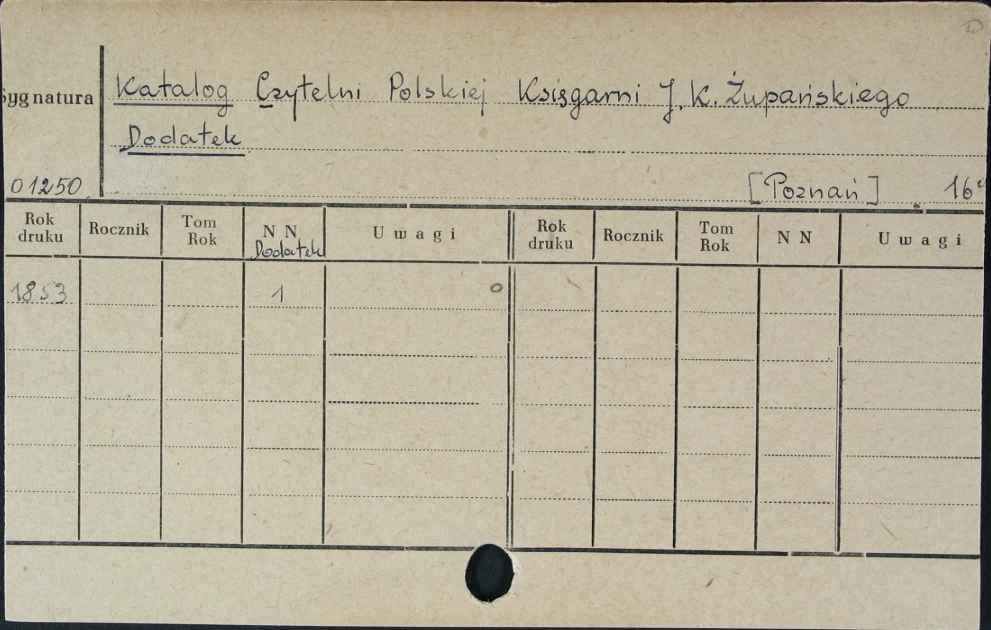 Sygnatura Katalog Czytelni Polskiej Księgarni J. K. Żupańskiego
Dodatek
01250 [Poznań] 16°
Rok druku Rocznik Tom Rok N N Dodatek Uwagi Rok druku Rocznik Tom Rok N N Uwagi
1853 1 o